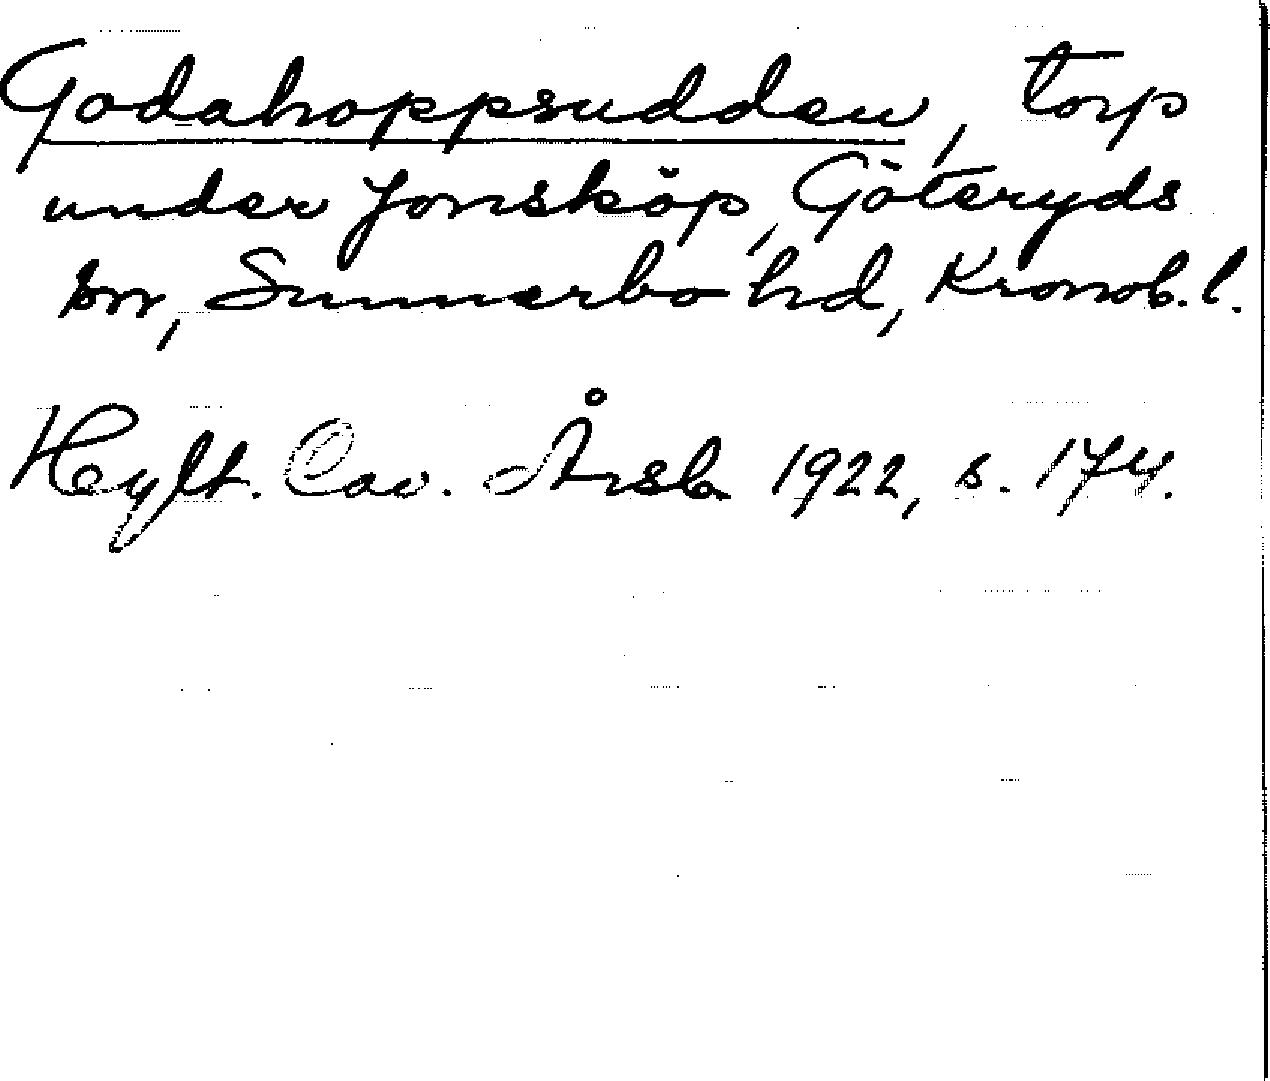 Godahoppsudden, torp
under Jonsköp, Göteryds
sn, Sunnerbo hd, Kronob. l.
Hylt. Cav. Årsb. 1922, s. 174.